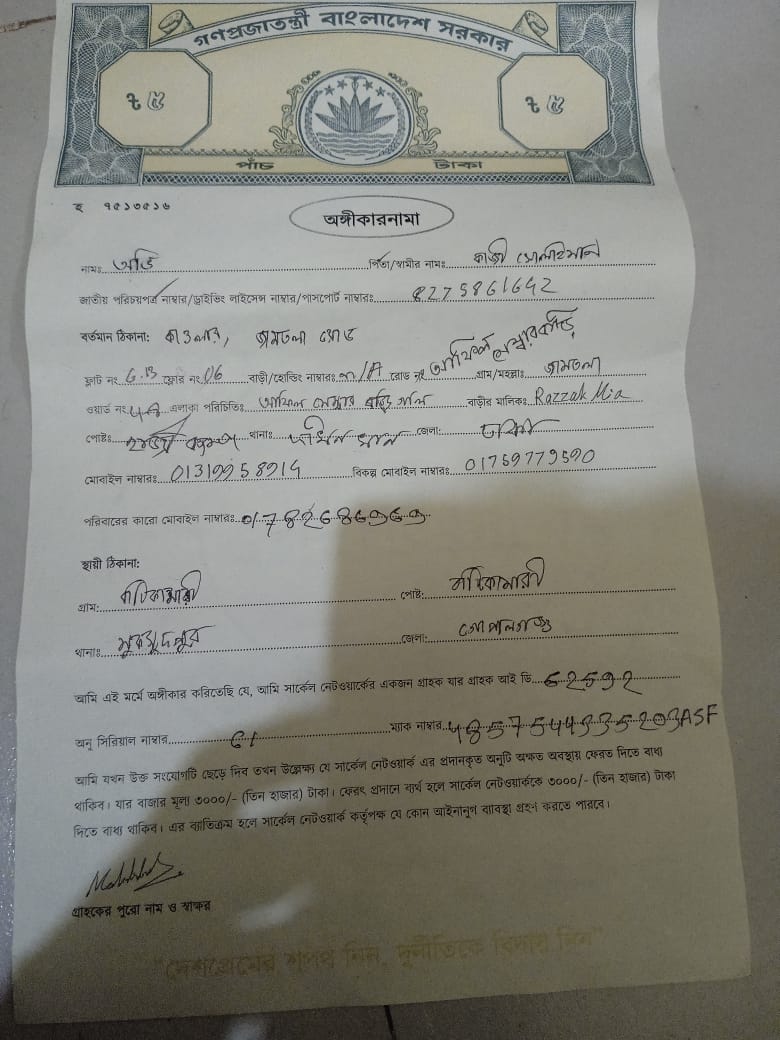 গণপ্রজাতন্ত্রী বাংলাদেশ সরকার
৳ ৫ ৳ ৫
পাঁচ টাকা
হ ৭৫১৩৫১৬
অঙ্গীকারনামা
নামঃ অভি পিতা/স্বামীর নামঃ কাজী সোলাইমান
জাতীয় পরিচয়পত্র নাম্বার/ড্রাইভিং লাইসেন্স নাম্বার/পাসপোর্ট নাম্বারঃ 8275861642
বর্তমান ঠিকানা: কাওলার, জামতলা রোড
ফ্লাট নং 6.B ফ্লোর নং 06 বাড়ী/হোল্ডিং নাম্বারঃ /A রোড নং গ্রাম/মহল্লাঃ জামতলা
ওয়ার্ড নং এলাকা পরিচিতিঃ বাড়ীর মালিকঃ Razzak Mia
পোষ্টঃ থানাঃ দক্ষিন খান জেলা: ঢাকা
মোবাইল নাম্বারঃ 01319958914 বিকল্প মোবাইল নাম্বারঃ 01759779590
পরিবারের কারো মোবাইল নাম্বারঃ 01782686969
স্থায়ী ঠিকানা:
গ্রাম: পোষ্ট:
থানাঃ মুকসুদপুর জেলা: গোপালগঞ্জ
আমি এই মর্মে অঙ্গীকার করিতেছি যে, আমি সার্কেল নেটওয়ার্কের একজন গ্রাহক যার গ্রাহক আই ডি 62592
অনু সিরিয়াল নাম্বার ম্যাক নাম্বার
আমি যখন উক্ত সংযোগটি ছেড়ে দিব তখন উল্লেখ্য যে সার্কেল নেটওয়ার্ক এর প্রদানকৃত অনুটি অক্ষত অবস্থায় ফেরত দিতে বাধ্য
থাকিব। যার বাজার মূল্য ৩০০০/- (তিন হাজার) টাকা। ফেরৎ প্রদানে ব্যর্থ হলে সার্কেল নেটওয়ার্ককে ৩০০০/- (তিন হাজার) টাকা
দিতে বাধ্য থাকিব। এর ব্যতিক্রম হলে সার্কেল নেটওয়ার্ক কর্তৃপক্ষ যে কোন আইনানুগ ব্যবস্থা গ্রহণ করতে পারবে।
গ্রাহকের পুরো নাম ও স্বাক্ষর
"দেশপ্রেমের শপথ নিন, দুর্নীতিকে বিদায় দিন"